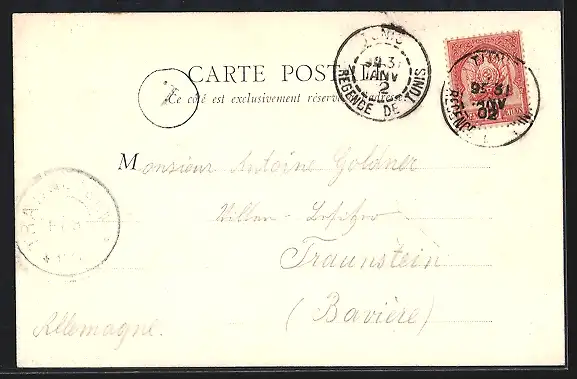 CARTE POSTALE
Ce côté est exclusivement réservé à l'adresse
TUNIS
9-31
JANV
2
REGENCE DE TUNIS
9-31
JANV
02
REGENCE
Monsieur Antoine Goldner
Villen-Besitzer
Traunstein
(Bavière)
Allemagne.